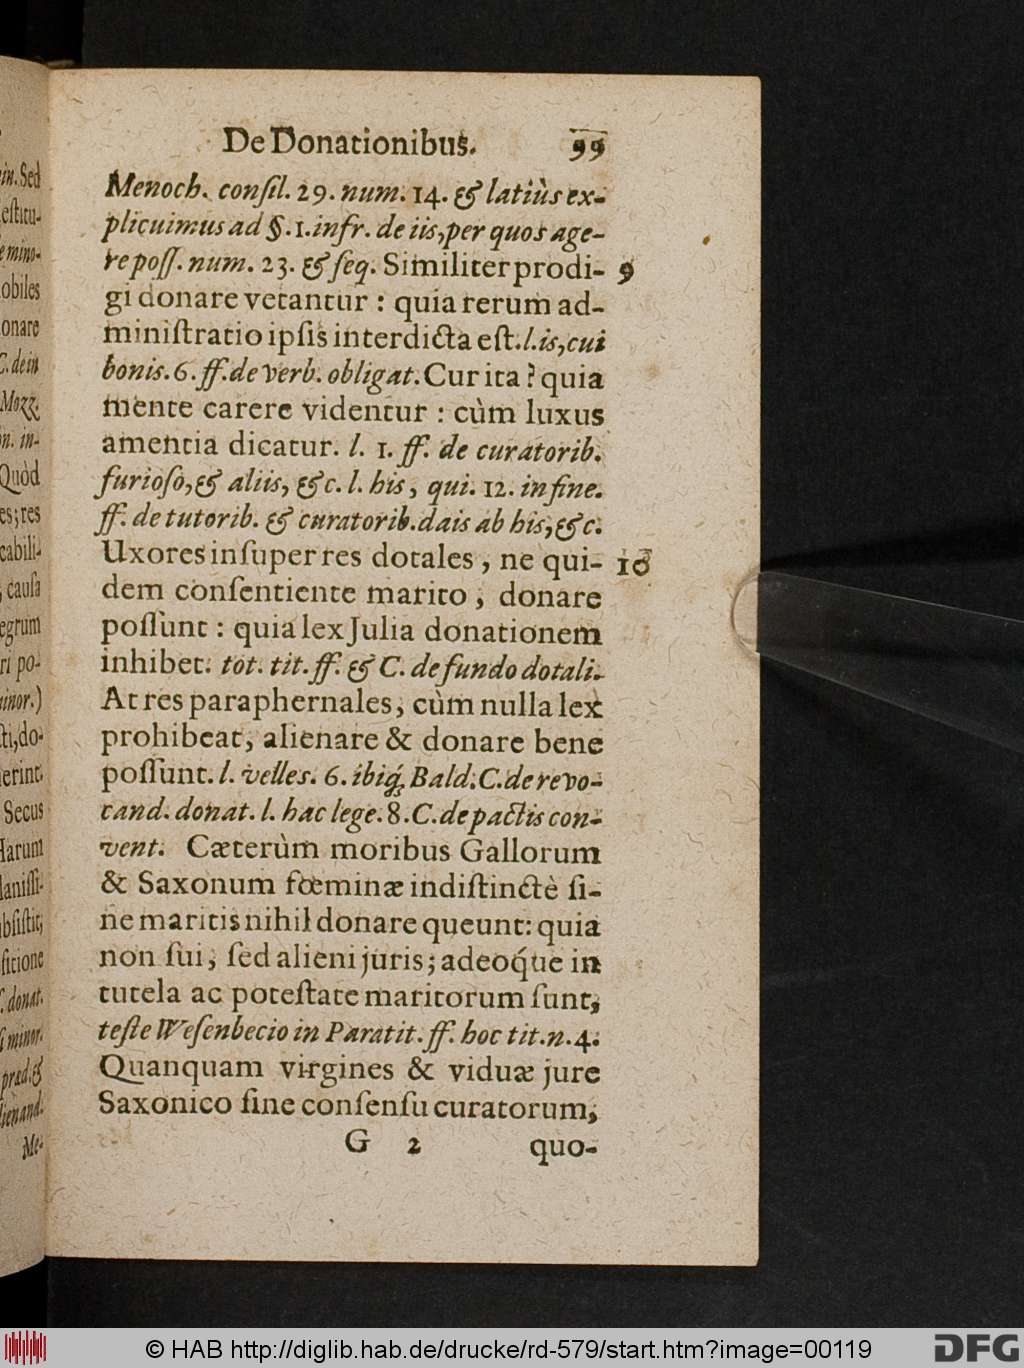 in. Sed
estitu-
e mino-
obiles
onare
C. de in
Mozz.
n. in-
Quòd
es; res
cabili-
, causa
egrum
ri po-
inor.)
ti, do-
erint.
Secus
Harum
laniſſi-
bſiſtit,
ſitione
C. donat.
ſi minor.
præd. &
lienand.
Me-
De Donationibus. 99
Menoch. conſil. 29. num. 14. & latiùs ex-
plicuimus ad §. 1. infr. de iis, per quos age-
re poſſ. num. 23. & ſeq. Similiter prodi- 9
gi donare vetantur : quia rerum ad-
miniſtratio ipſis interdicta eſt. l. is, cui
bonis. 6. ff. de verb. obligat. Cur ita ? quia
mente carere videntur : cùm luxus
amentia dicatur. l. 1. ff. de curatorib.
furioſo, & aliis, &c. l. his, qui. 12. in fine.
ff. de tutorib. & curatorib. dais ab his, &c.
Uxores inſuper res dotales, ne qui- 10
dem conſentiente marito, donare
poſſunt : quia lex Julia donationem
inhibet. tot. tit. ff. & C. de fundo dotali.
At res paraphernales, cùm nulla lex
prohibeat, alienare & donare bene
poſſunt. l. velles. 6. ibiq́; Bald. C. de revo-
cand. donat. l. hac lege. 8. C. de pactis con-
vent. Cæterùm moribus Gallorum
& Saxonum fœminæ indiſtinctè ſi-
ne maritis nihil donare queunt: quia
non ſui, ſed alieni juris; adeoq́ue in
tutela ac poteſtate maritorum ſunt,
teſte Weſenbecio in Paratit. ff. hoc tit. n. 4.
Quanquam virgines & viduæ jure
Saxonico ſine conſenſu curatorum,
G 2 quo-
© HAB http://diglib.hab.de/drucke/rd-579/start.htm?image=00119
DFG